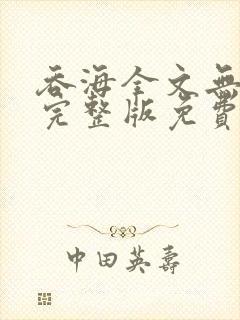 吞海全文無
完整版免費
中田英壽